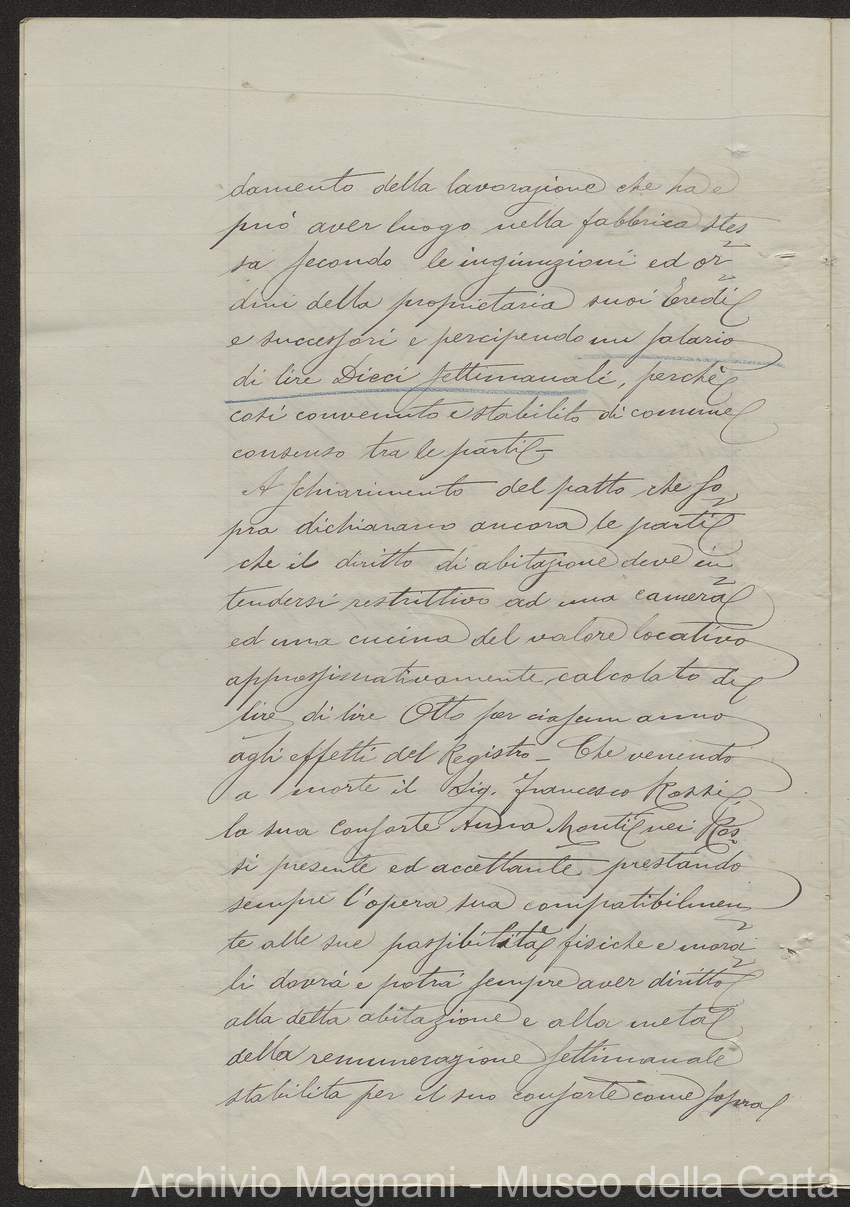 damento della lavorazione che ha e
può aver luogo nella fabbrica stes
sa secondo le ingiunzioni ed or
dini della proprietaria suoi Eredi
e successori e percipendo un salario
di lire Dieci settimanali, perchè
così convenuto e stabilito di comune
consenso tra le parti –
A schiarimento del patto che so
pra dichiarano ancora le parti
che il diritto di abitazione deve in
tendersi restrittivo ad una camera
ed una cucina del valore locativo
approssimativamente calcolato di
lire di lire Otto per ciascun anno
agli effetti del Registro – Che venendo
a morte il Sig. Francesco Rossi
la sua consorte Anna Monti nei Ros
si presente ed accettante prestando
sempre l'opera sua compatibilmen
te alle sue possibilità fisiche e mora
li dovrà e potrà sempre aver diritto
alla detta abitazione e alla metà
della remunerazione settimanale
stabilita per il suo consorte come sopra
Archivio Magnani - Museo della Carta